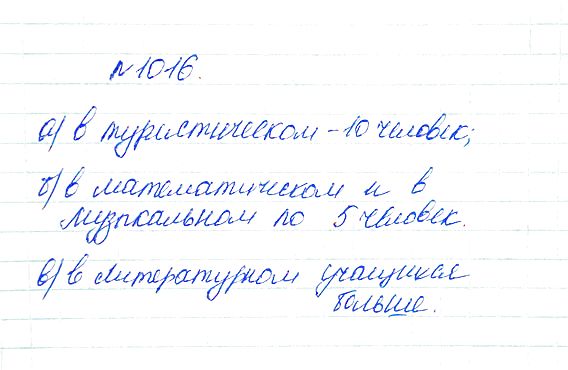 №1016.
а) в туристическом - 10 человек;
б) в математическом и в
музыкальном по 5 человек.
в) в литературном учащихся
больше.